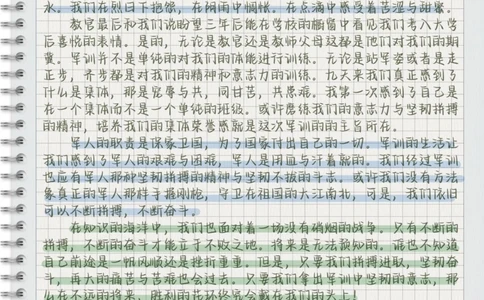 水。我们在烈日下抱怨，在阴雨中惆怅。在点滴中感受着苦涩与甜蜜。
教官最后和我们说盼望三年后能在学校的橱窗中看见我们考入大学
后喜悦的表情。是的，无论是教官还是教师父母这都是他们对我们的期
冀。军训并不是单纯的对我们的体能进行训练。无论是站军姿或者是走
正步，齐步都是对我们的精神和意志力的训练。九天来我们真正感到了
什么是集体，那是宽辱与共，同甘苦，共患难。我第一次感到了自己是
在一个集体而不是一个单纯的班级。或许磨练我们的意志力与坚韧拼搏
的精神，培养我们的集体荣誉感就是这次军训的的主旨所在。
军人的职责是保家卫国，为了国家付出自己的一切。军训的生活让
我们感到了军人的艰艰与困难，军人是用血与汗着就的。我们经过军训
也应有军人那种坚韧拼搏的精神与坚韧不拔的斗志。或许我们没有方法
象真正的军人那样手握刚枪，守卫在祖国的大江南北，可是，我们依旧
可以不断拼搏，不断奋斗。
在知识的海洋中，我们也面对着一场没有硝烟的战争。只有不断的
拼搏，不断的奋斗才能立于不败之地。将来是无法预知的。谁也不知道
自己前途是一帆风顺还是挫折重重。但是，只要我们拼搏进取，坚韧奋
斗，再大的痛苦与苦难也会过去。只要我们拿出军训中坚韧的意志，那
么在不远的将来，胜利的花环终究会戴在我们的头上！